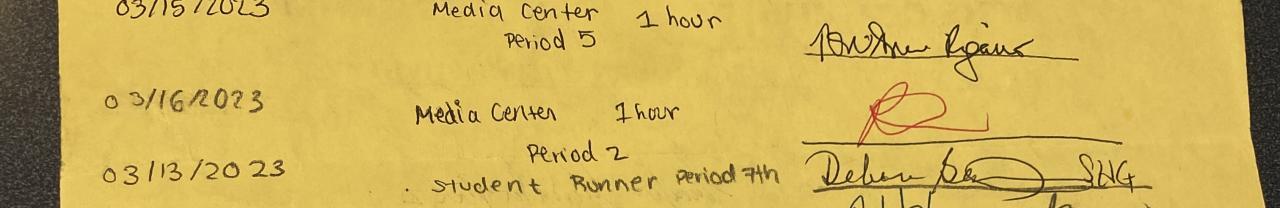 03/15/2023 Media Center 1 hour
Period 5
03/16/2023 Media Center 1 hour
Period 2
03/13/2023 . Student Runner Period 7th